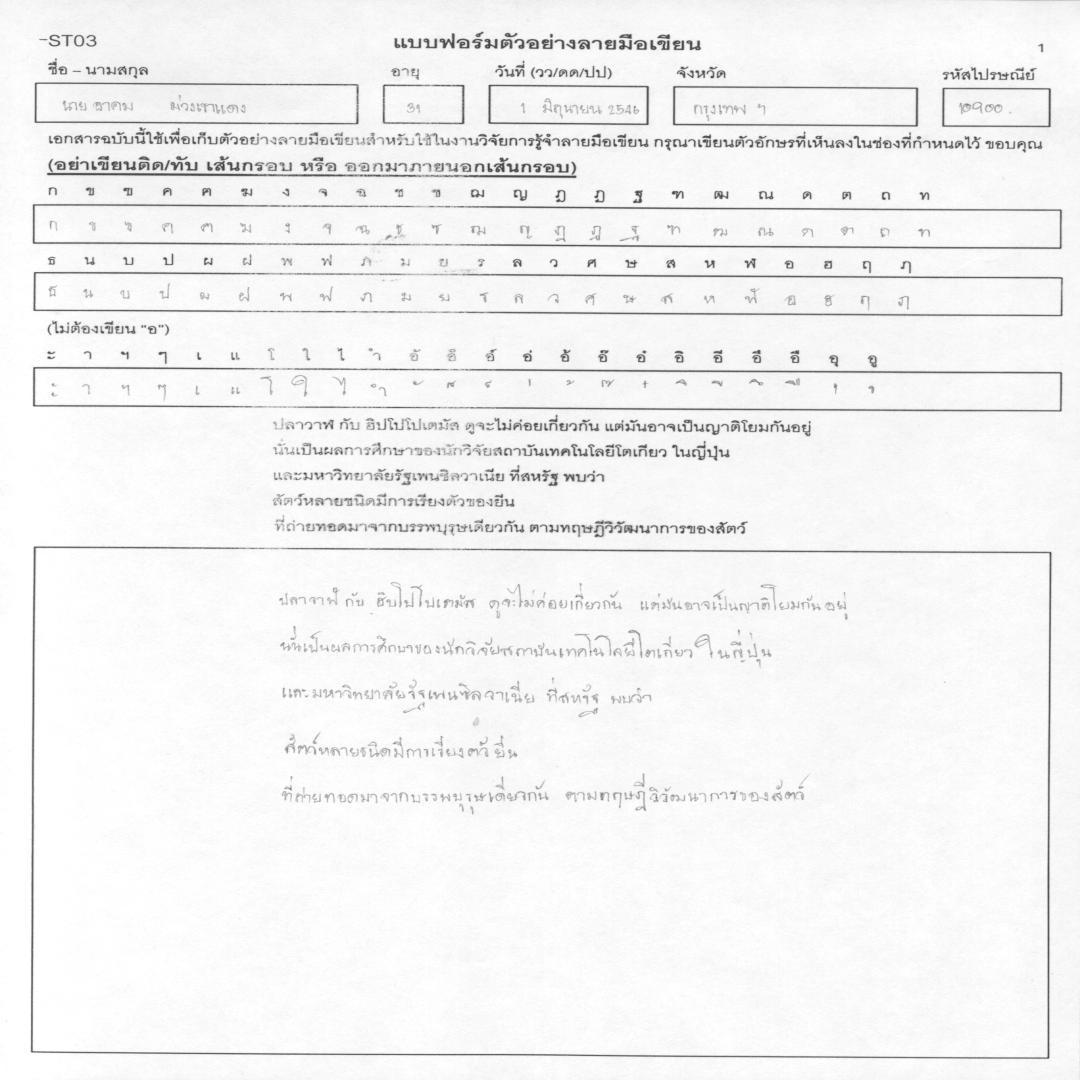 -ST03
แบบฟอร์มตัวอย่างลายมือเขียน
1
ชื่อ – นามสกุล อายุ วันที่ (วว/ดด/ปป) จังหวัด รหัสไปรษณีย์
นาย อาคม ม่วงเขาแดง 31 1 มิถุนายน 2546 กรุงเทพ ฯ 10900.
เอกสารฉบับนี้ใช้เพื่อเก็บตัวอย่างลายมือเขียนสำหรับใช้ในงานวิจัยการรู้จำลายมือเขียน กรุณาเขียนตัวอักษรที่เห็นลงในช่องที่กำหนดไว้ ขอบคุณ
(อย่าเขียนติด/ทับ เส้นกรอบ หรือ ออกมาภายนอกเส้นกรอบ)
ก ข ฃ ค ฅ ฆ ง จ ฉ ช ซ ฌ ญ ฎ ฏ ฐ ฑ ฒ ณ ด ต ถ ท
ก ข ฃ ค ฅ ฆ ง จ ฉ ช ซ ฌ ญ ฎ ฏ ฐ ฑ ฒ ณ ด ต ถ ท
ธ น บ ป ผ ฝ พ ฟ ภ ม ย ร ล ว ศ ษ ส ห ฬ อ ฮ ฤ ฦ
ธ น บ ป ผ ฝ พ ฟ ภ ม ย ร ล ว ศ ษ ส ห ฬ อ ฮ ฤ ฦ
(ไม่ต้องเขียน "อ")
ะ า ฯ ๆ เ แ โ ใ ไ ำ อั อ็ อ์ อ่ อ้ อ๊ อ๋ อิ อี อึ อื อุ อู
ะ า ฯ ๆ เ แ โ ใ ไ ำ ั ็ ์ ่ ้ ๊ ๋ ิ ี ึ ื ุ ู
ปลาวาฬ กับ ฮิปโปโปเตมัส ดูจะไม่ค่อยเกี่ยวกัน แต่มันอาจเป็นญาติโยมกันอยู่
นั่นเป็นผลการศึกษาของนักวิจัยสถาบันเทคโนโลยีโตเกียว ในญี่ปุ่น
และมหาวิทยาลัยรัฐเพนซิลวาเนีย ที่สหรัฐ พบว่า
สัตว์หลายชนิดมีการเรียงตัวของยีน
ที่ถ่ายทอดมาจากบรรพบุรุษเดียวกัน ตามทฤษฎีวิวัฒนาการของสัตว์
ปลาวาฬ กับ ฮิปโปโปเตมัส ดูจะไม่ค่อยเกี่ยวกัน แต่มันอาจเป็นญาติโยมกัน อยู่
นั่นเป็นผลการศึกษาของนักวิจัยสถาบันเทคโนโลยีโตเกียว ในญี่ปุ่น
และมหาวิทยาลัยรัฐเพนซิลวาเนีย ที่สหรัฐ พบว่า
สัตว์หลายชนิดมีการเรียงตัว ยีน
ที่ถ่ายทอดมาจากบรรพบุรุษเดียวกัน ตามทฤษฎีวิวัฒนาการของสัตว์